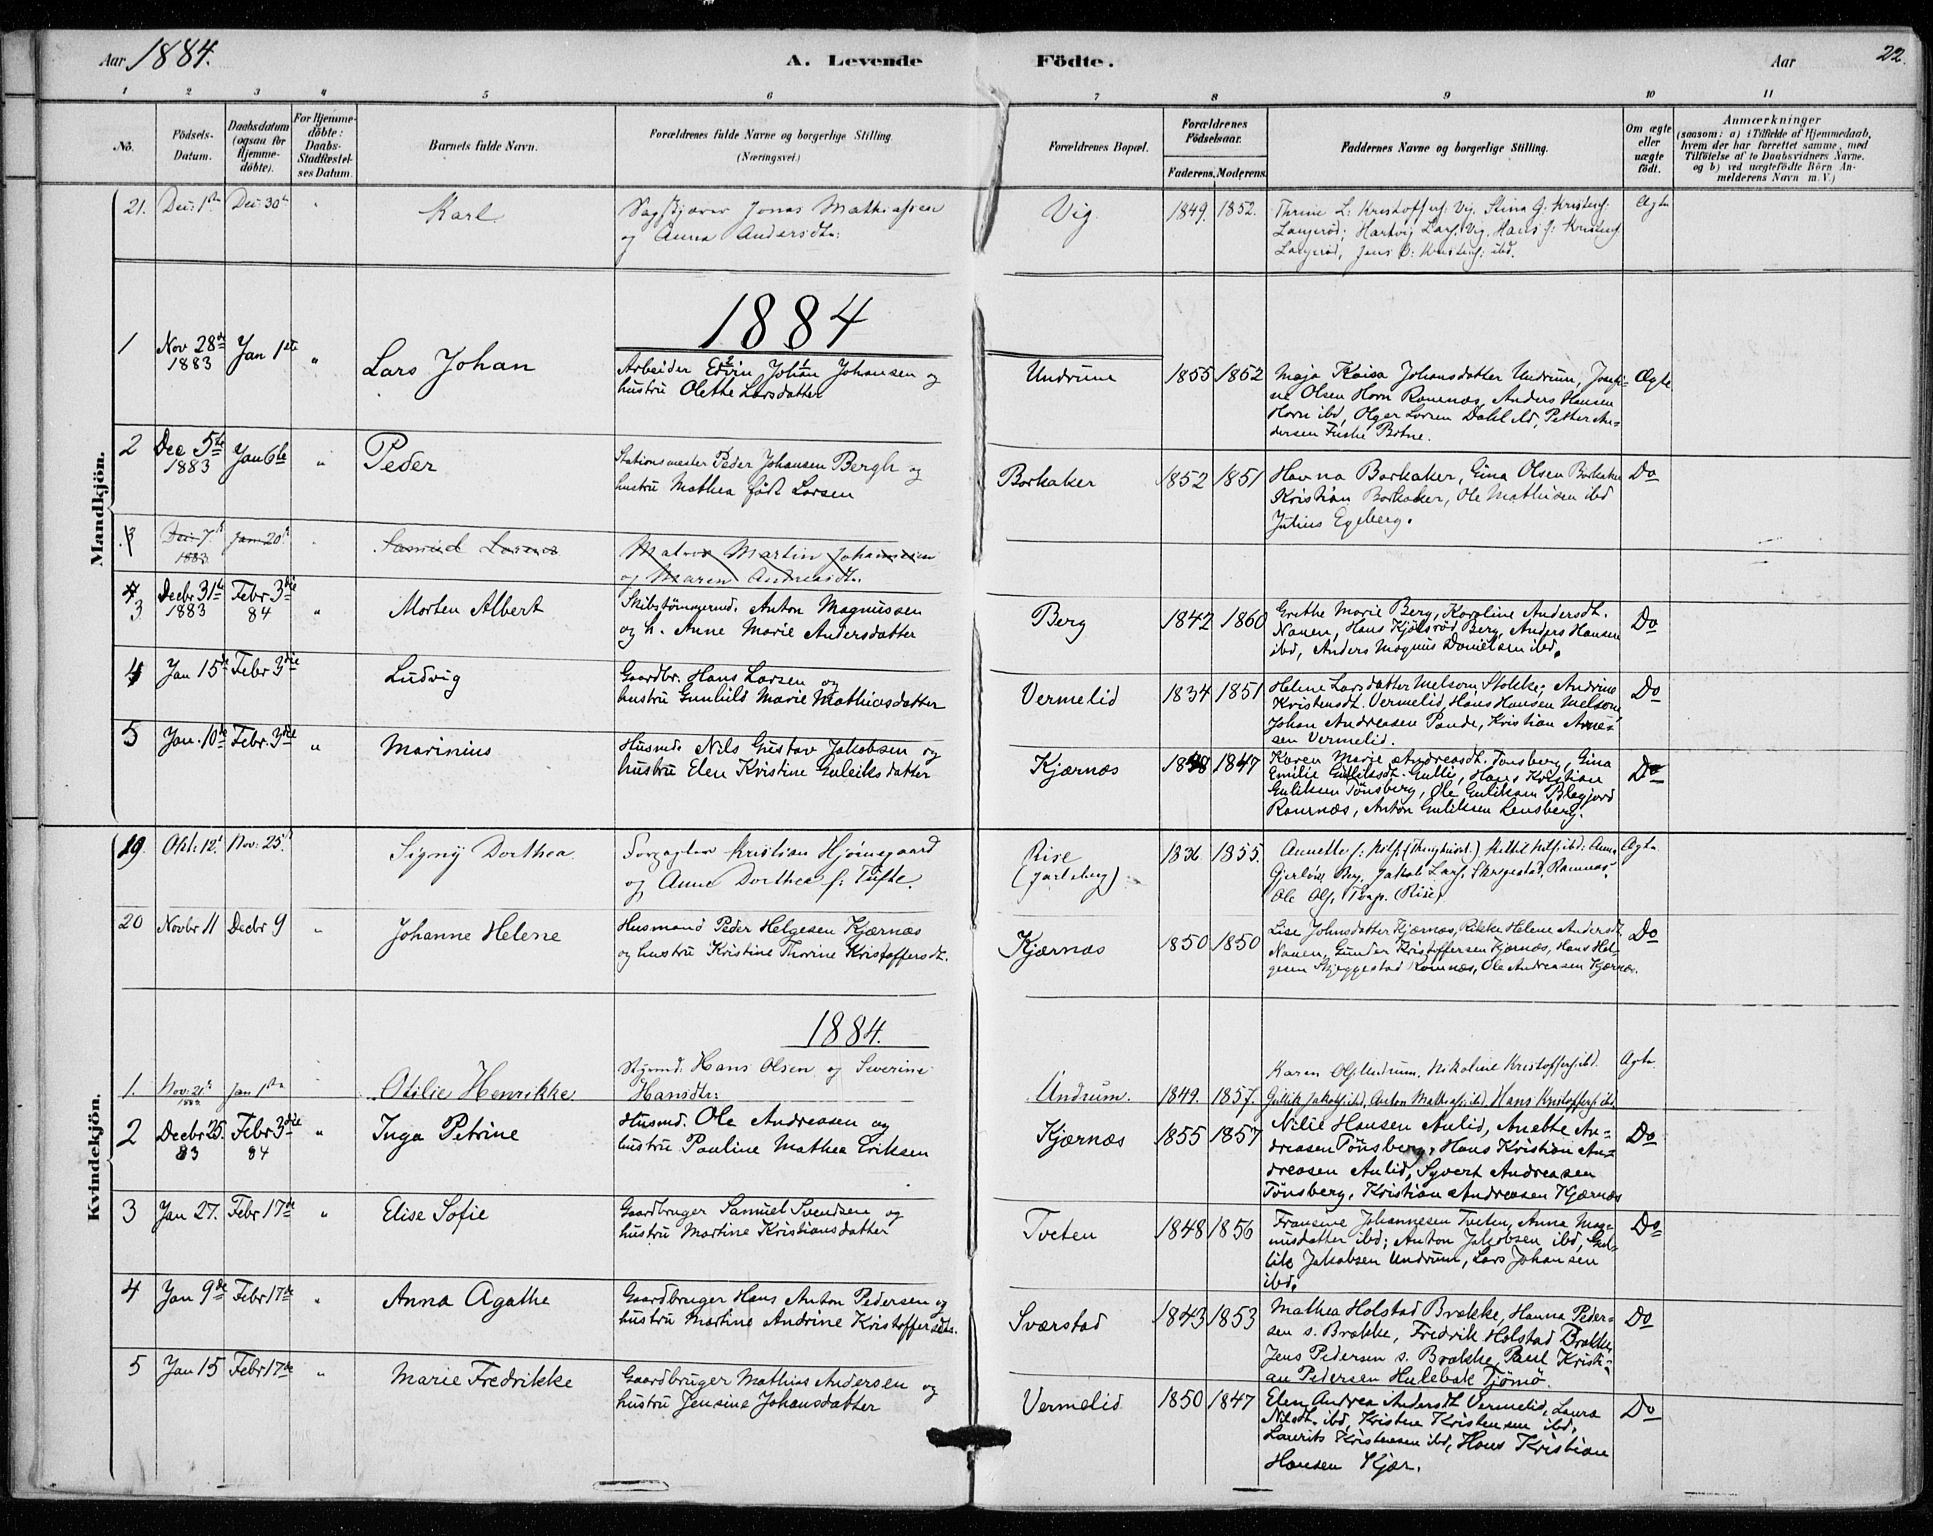 Aar 1884. A. Levende Födte. Aar 22.
1 2 3 4 5 6 7 8 9 10 11
No. Födsels-Datum. Daabsdatum (ogsaa for Hjemme-döbte). For Hjemme-döbte: Daabs-Stadfæstel-ses Datum. Barnets fulde Navn. Forældrenes fulde Navne og borgerlige Stilling. (Næringsvei.) Forældrenes Bopæl. Forældrenes Födselsaar. Faderens. Moderens. Faddernes Navne og borgerlige Stilling. Om ægte eller uægte födt. Anmærkninger (saasom: a) i Tilfælde af Hjemmedaab, hvem der har forrettet samme, med Tilföielse af to Daabsvidners Navne, og b) ved uægtefödte Börn An-melderens Navn m. V.)
Mandkjön.
21. Dec: 1ste Dec: 30te " Karl Sagskjærer Jonas Mathiassen
og Anna Andersdtr: Vig 1849. 1852. Thrine L: Kristoffers: Vig. Stina G: Kristens:
Langerød; Hartvig Lars: Vig. Hans J: Kristens:
Langerød, Jens C: Kristens: ibd. Ægte
1884
1 Nov 28de 1883 Jan 1ste " Lars Johan Arbeider Edvin Johan Johansen og
hustru Olethe Larsdatter Undrum 1855 1852 Maja Kaisa Johansdatter Undrum, Josefi-
ne Olsen Horn Ramnæs, Anders Hansen
Horn ibd, Olger Larsen Dahl ibd, Petter An-
dersen Fuske Botne. Ægte
2 Dec 5te 1883 Jan 6te " Peder Stationsmester Peder Johansen Bergh og
hustru Mathea født Larsen Barkaker 1852 1851 Havna Barkaker, Gina Olsen Barkaker
Kristian Barkaker, Ole Mathisen ibd
Julius Egeberg. Do
3 Dec: 7de 1883 Jan 20de Samuel Lorents Matros Martin Johannesen
og Maren Andreasdtr.
3 Decbr 31te 1883 Febr 3die 84 " Morten Albert Skibstømmermd. Anton Magnussen
og h. Anne Marie Andersdatter Berg 1842 1860 Grethe Marie Berg, Karoline Andersdt.
Nauen, Hans Kjølsrød Berg, Anders Hansen
ibd, Anders Magnus Danielsen ibd. Do
4 Jan 15de Febr 3die Ludvig Gaardbr. Hans Larsen og
hustru Gunhild Marie Mathiasdatter Vermelid 1834 1851 Helene Larsdatter Melsom, Stokke, Andrine
Kristensdt. Vermelid, Hans Hansen Melsom,
Johan Andreasen Pande, Kristian Arne-
sen Vermelid. Do
5 Jan. 10de Febr. 3die " Marinius Husmd. Nils Gustav Jakobsen og
hustru Elen Kristine Guleiksdatter Kjærnæs 1848 1847 Karen Marie Andreasdt. Tønsberg, Gina
Emilie Guliksdt. Gulli, Hans Kristian
Guliksen Tønsberg, Ole Guliksen Blegjord
Ramnæs, Anton Guliksen Lensberg. Do
Kvindekjön.
19. Okt. 12. Nov: 25. Signy Dorthea Forpagter Kristian Hjørnegaard
og Anne Dorthea f: Tufte. Rise
(Jarlsberg) 1836 1855. Ægte
Ole Ols. Rise.
20 Novbr 11 Decbr 9 " Johanne Helene Husmand Peder Helgesen Kjærnæs
og hustru Kristine Thorine Kristoffersdt. Kjærnæs 1850 1850 Lise Johnsdatter Kjærnæs, Rikke Helene Andersdt.
Nauen, Gunder Kristoffersen Kjærnæs, Hans Hel-
gesen Skjeggestad Ramnæs, Ole Andreasen Kjærnæs. Do
1884.
1. Nov: 21de 1883 Jan 1ste Otilie Henrikke Styrmd: Hans Olsen og Severine
Hansdtr: Undrum. 1849. 1857. Karen Ols. Undrum. Nikoline Kristoffers: ibd.
Gullik Jakobs: ibd, Anton Mathias: ibd, Hans Kristoffers: ibd. Ægte
2 Decbr 25. 83 Febr 3die 84 " Inga Petrine Husmd. Ole Andreasen og
hustru Pauline Mathea Eriksen Kjærnæs 1855 1857 Nilie Hansen Aulid, Anette An-
dreasen Tønsberg, Hans Kristian An-
dreasen Aulid, Syvert Andreasen
Tønsberg, Kristian Andreasen Kjærnæs Do
3 Jan 27. Febr 17de " Elise Sofie Gaardbruger Samuel Svendsen og
hustru Martine Kristiansdatter Tveten 1848 1856 Fransine Johannesen Tveten, Anna Mag-
nusdatter ibd; Anton Jakobsen ibd, Gul-
lik Jakobsen Undrum, Lars Johansen
ibd. Do
4 Jan 9de Febr 17de " Anna Agathe Gaardbruger Hans Anton Pedersen og
hustru Martine Andrine Kristoffersdtr. Sværstad 1843 1853 Mathea Holstad Brække, Hanna Peder-
sen s. Brække, Fredrik Holstad Brække
Jens Pedersen s. Brække, Paul Kristi-
an Pedersen Hulebak Tjömö. Do
5 Jan 15 Febr 17de " Marie Fredrikke Gaardbruger Mathias Andersen og
hustru Jensine Johansdatter Vermelid 1850 1847 Elen Andrea Andersdt. Vermelid, Laura
Nilsdt. ibd, Kristen Kristensen ibd,
Laurits Kristensen ibd, Hans Kristian
Hansen Kjær. Do